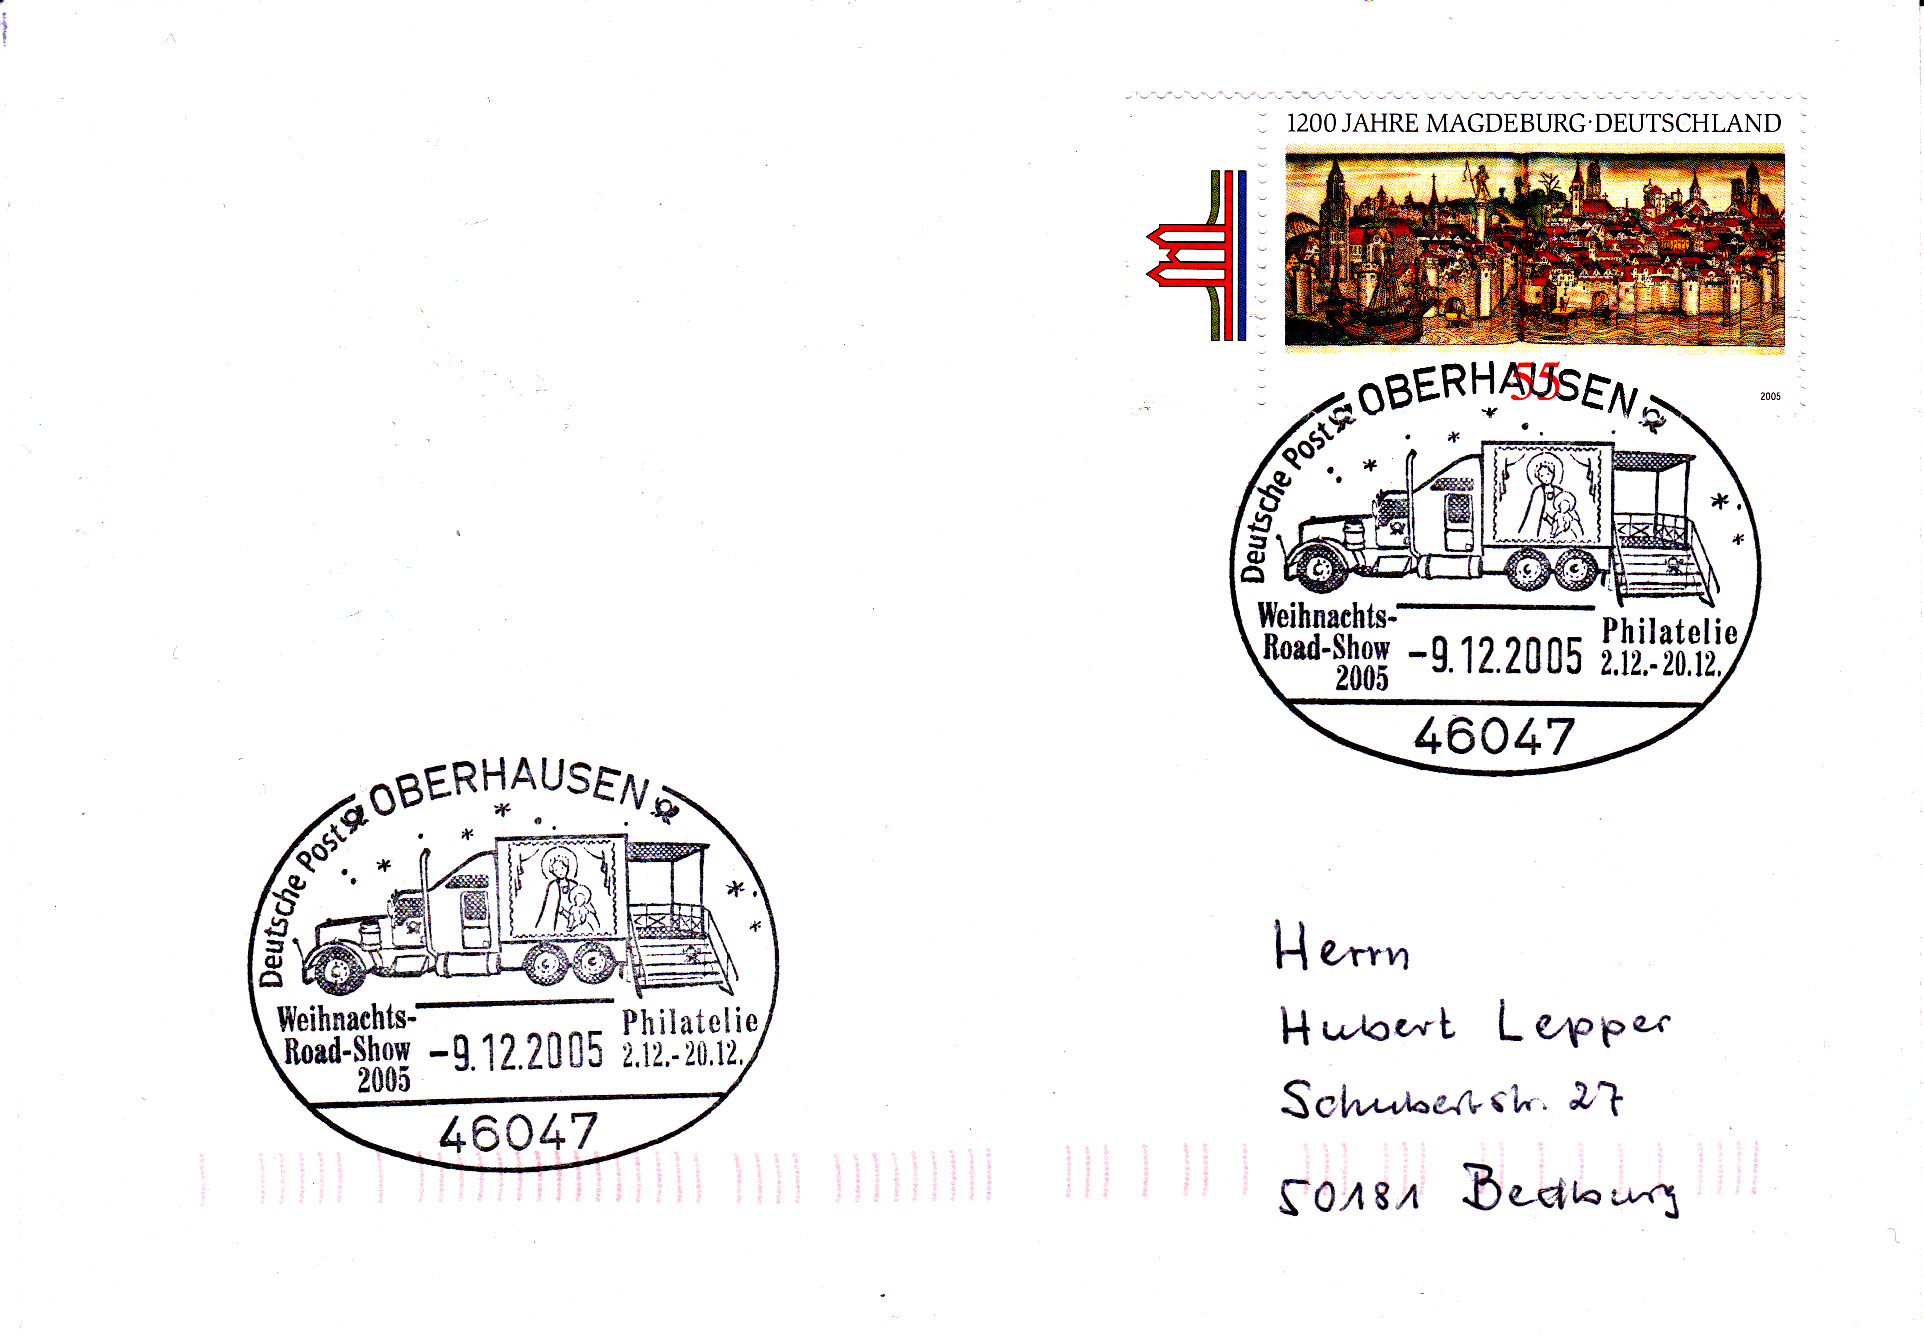 1200 JAHRE MAGDEBURG·DEUTSCHLAND
55
2005
Deutsche Post
OBERHAUSEN
Weihnachts-
Road-Show
2005
-9.12.2005
Philatelie
2.12.-20.12.
46047
Deutsche Post
OBERHAUSEN
Weihnachts-
Road-Show
2005
-9.12.2005
Philatelie
2.12.-20.12.
46047
Herrn
Hubert Lepper
Schubertstr. 27
50181 Bedburg